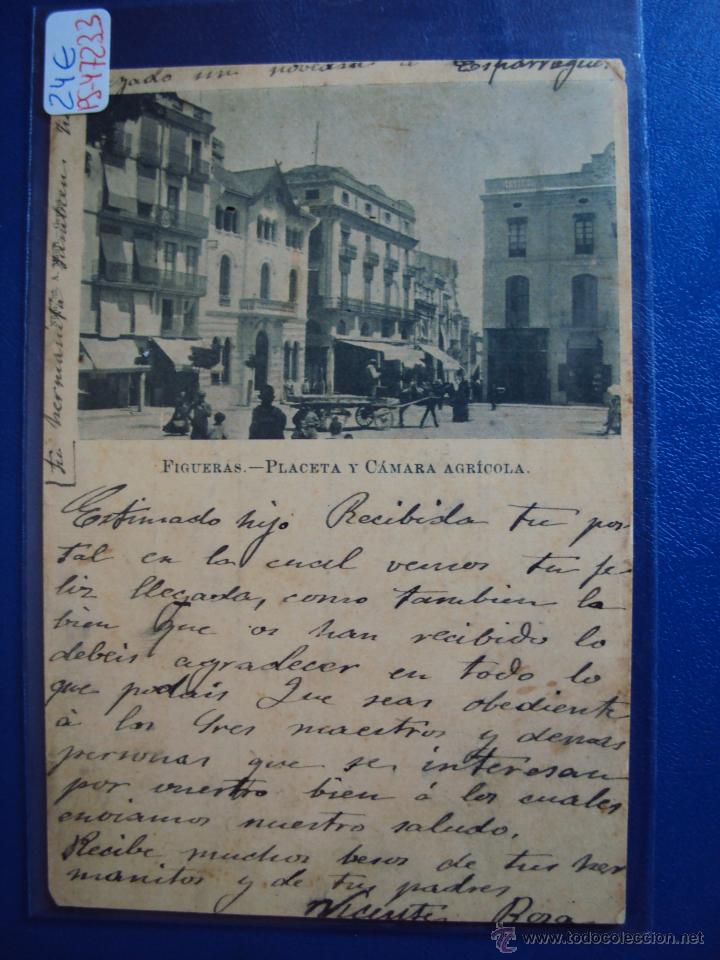 24€
PS-47233
tu hermanita
FIGUERAS.—PLACETA Y CÁMARA AGRÍCOLA.
Estimado hijo Recibida tu pos-
tal en la cual vemos tu fe-
liz llegada, como tambien lo
bien que os han recibido lo
debeis agradecer en todo lo
que podais Que seas obediente
á los Sres maestros y demas
personas que se interesan
por vuestro bien á los cuales
enviamos nuestro saludo.
Recibe muchos besos de tus her
manitos y de tus padres
Vicente Rosa
www.todocoleccion.net